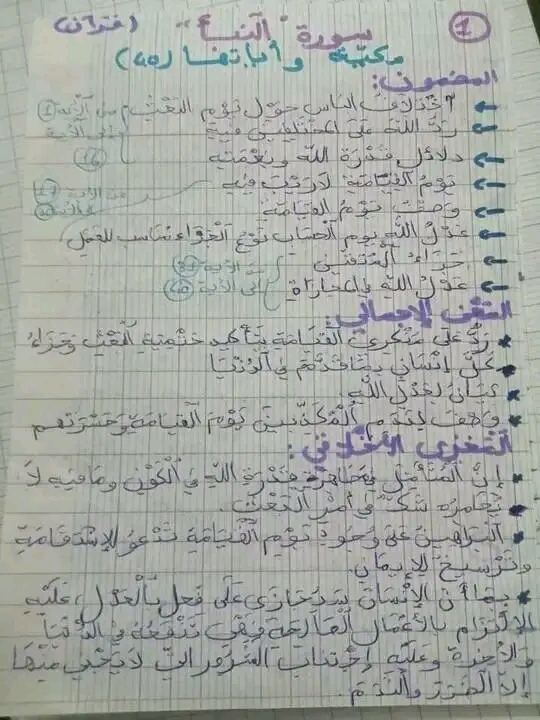 1 سورة "النبأ" (قرآن)
مكية وآياتها (40)
المضمون:
← اختلاف الناس حول يوم البعث من الآية 1
← ردّ الله على المختلفين فيه إلى الآية
← دلائل قدرة الله ونعمته 16
← يوم القيامة لا ريب فيه من الآية 17
← وصف يوم القيامة
← عدل الله يوم الحساب نوع الجزاء مناسب للعمل
← جزاء المتقين من الآية
← عدل الله في مجازاة إلى الآية 40
الإجمالي:
* ردّ على منكري القيامة بتأكيد حتمية البعث وجزاء
كلّ إنسان بما قدّم في الدنيا
* بيان لعدل الله.
* وصف لندم المكذّبين يوم القيامة وحسرتهم
المغزى الأخلاقي:
* إنّ المتأمل بمظاهر قدرة الله في الكون وما فيه لا
* يخامره شكّ في أمر البعث.
* البراهين على وجود يوم القيامة تدعو للإستقامة
وترسيخ الإيمان.
* بما أنّ الإنسان سيجازى على فعل بالعدل، عليه
الإلتزام بالأعمال الصالحة فهي تنفعه في الدنيا
والآخرة وعليه إجتناب الشرور التي لا يجني منها
إلاّ الضرر والندم.